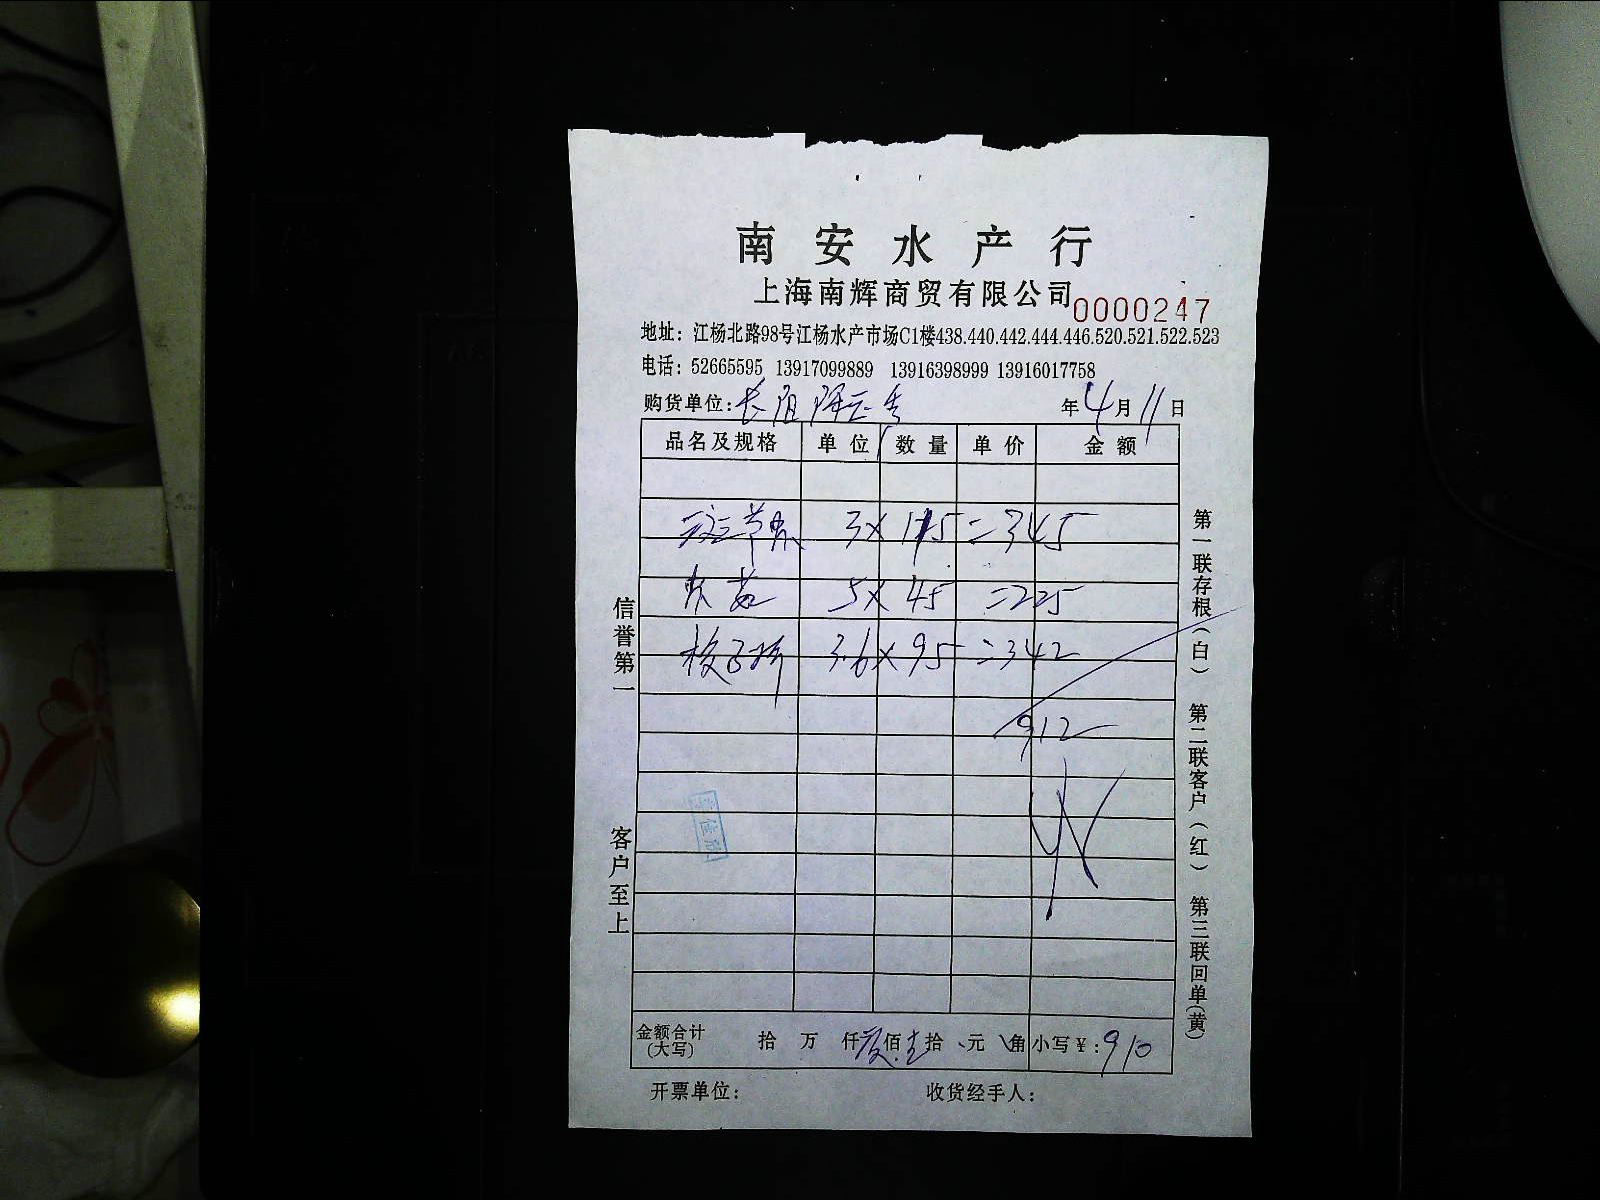 南安水产行
上海南辉商贸有限公司 0000247
地址：江杨北路98号江杨水产市场C1楼438.440.442.444.446.520.521.522.523
电话：52665595 13917099889 13916398999 13916017758
购货单位： 年4月11日
品名及规格 单位 数量 单价 金额
斑节 3×115=345
5×45=225
3.6×95=342
912
金额合计（大写） 拾 万 仟 佰壹拾 元 角 小写￥：910
开票单位： 收货经手人：
信誉第一
客户至上
第一联存根（白） 第二联客户（红） 第三联回单（黄）